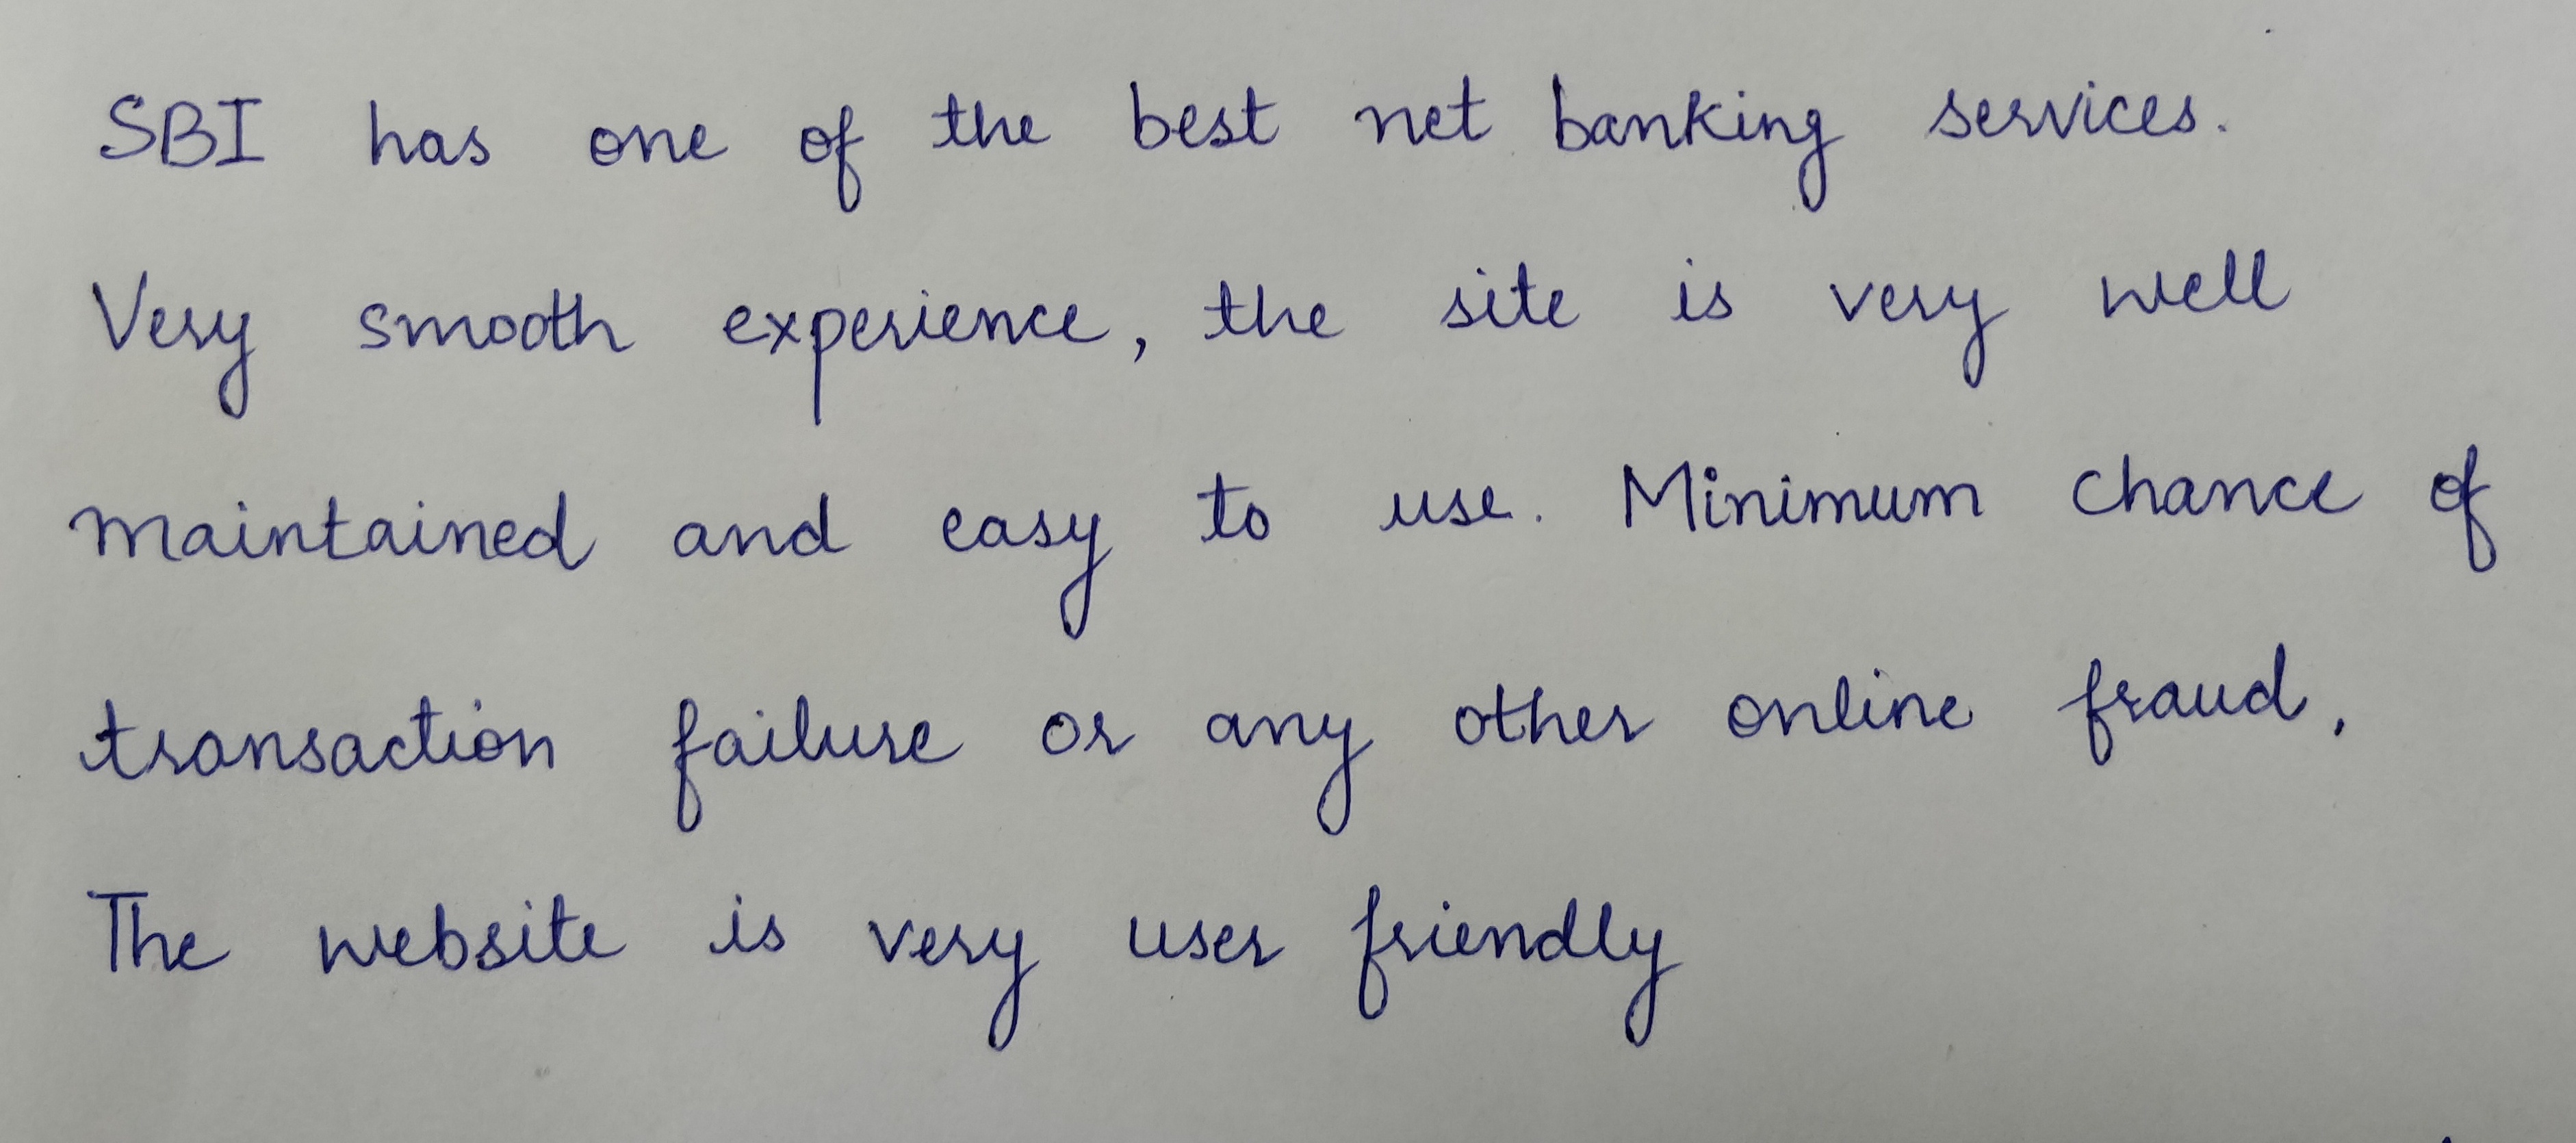 SBI has one of the best net banking services.
Very smooth experience, the site is very well
maintained and easy to use. Minimum chance of
transaction failure or any other online fraud.
The website is very user friendly